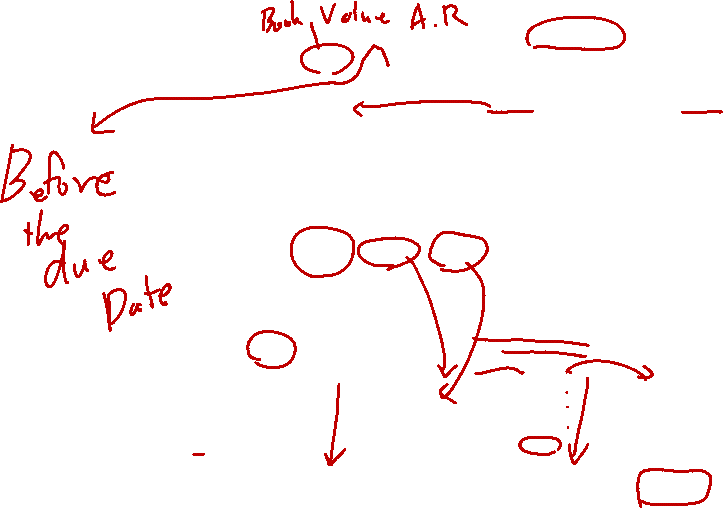 Book Value A.R
Before
the
due
Date